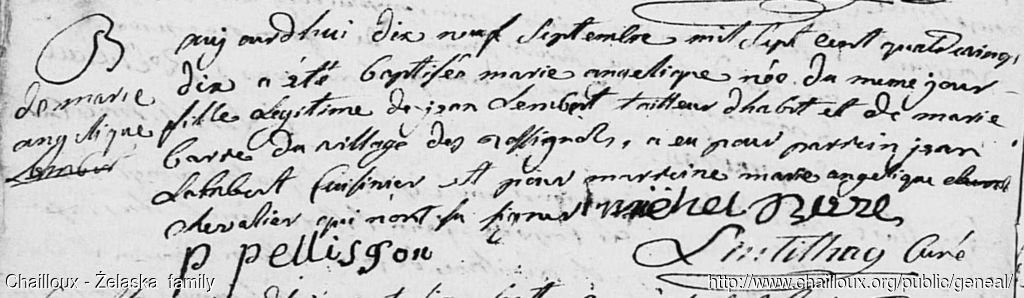 B
de marie
angelique
Lambert
aujourdhui dix neuf Septembre mil Sept cent quatre vingt
dix a été baptisée marie angelique née du meme jour
fille Legitime de jean Lembert tailleur dhabit et de marie
barre du village des Rossignols, a eu pour parrein jean
Lambert Cuisinier et pour marreine marie angelique
chevalier qui n'ont su signer michel
p pellisson
Curé
Chailloux - Żelaska family
http://www.chailloux.org/public/geneal/